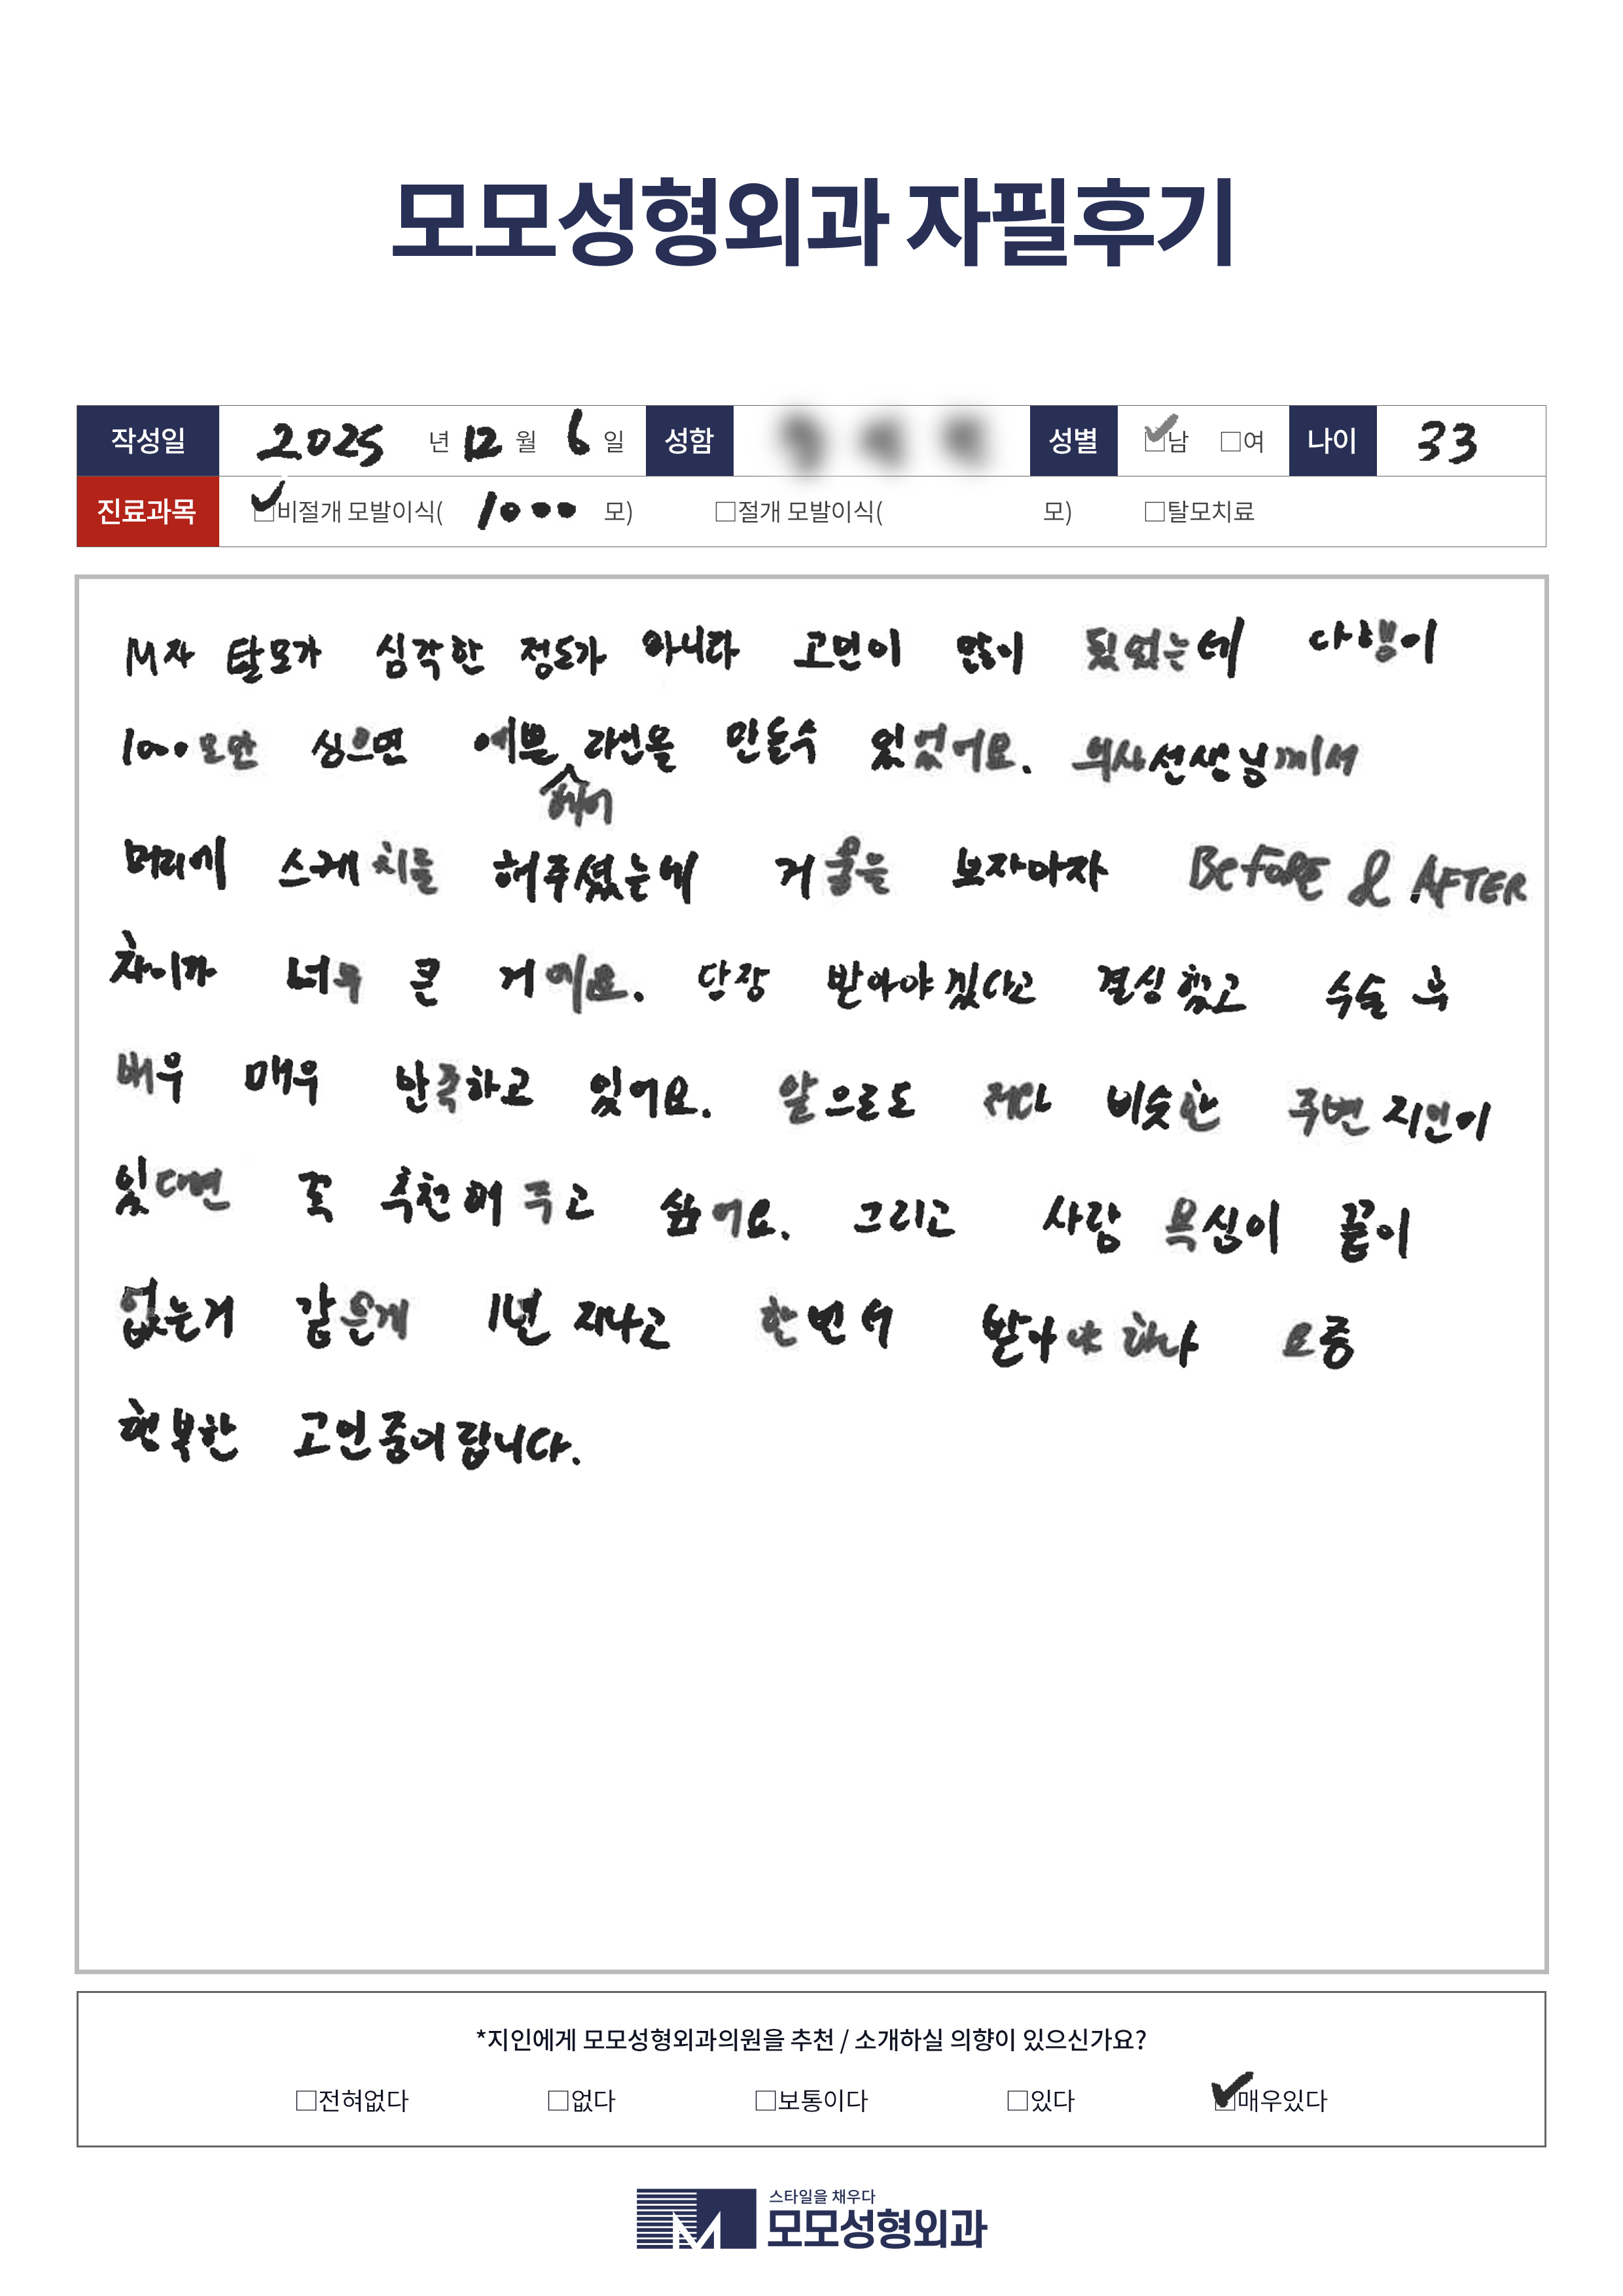 모모성형외과 자필후기
작성일 2025 년 12 월 6 일 성함 성별 ☑남 □여 나이 33
진료과목 ☑비절개 모발이식( 1000 모) □절개 모발이식( 모) □탈모치료
M자 탈모가 심각한 정도가 아니라 고민이 많이 됬었는데 다행이
1000모만 심으면 예쁜 라인을 만들수 있었어요. 의사선생님께서
헤어
머리에 스케치를 해주셨는데 거울을 보자마자 BeFORE & AFTER
차이가 너무 큰 거예요. 당장 받아야겠다고 결심했고 수술 후
매우 매우 만족하고 있어요. 앞으로도 저와 비슷한 주변 지인이
있다면 꼭 추천해 주고 싶어요. 그리고 사람 욕심이 끝이
없는거 같은게 1년 지나고 한번 더 받아야 하나 요즘
행복한 고민중이랍니다.
*지인에게 모모성형외과의원을 추천 / 소개하실 의향이 있으신가요?
□전혀없다 □없다 □보통이다 □있다 ☑매우있다
스타일을 채우다
모모성형외과